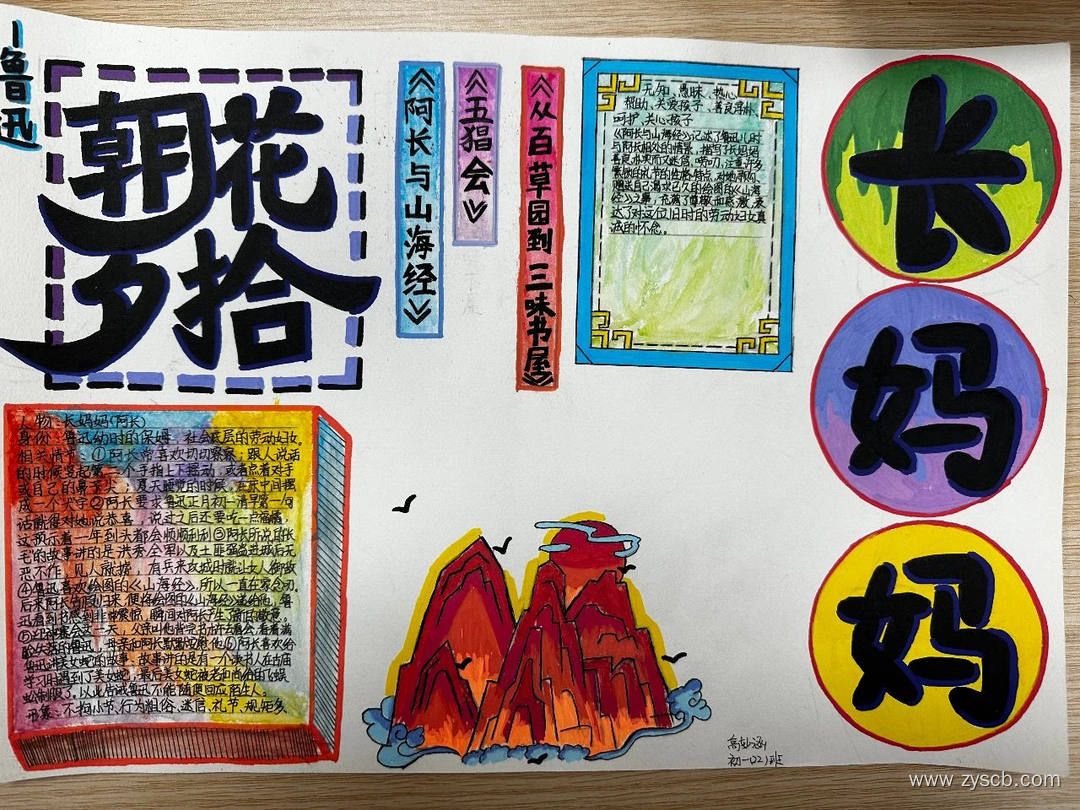 鲁迅
朝花
夕拾
《阿长与山海经》
《五猖会》
《从百草园到三味书屋》
无知、愚昧、热心
帮助、关爱孩子、善良淳朴、
呵护、关心孩子
《阿长与山海经》记述了鲁迅儿时
与阿长相处的情景，描写了长妈妈
善良朴实而又迷信、唠叨，注意许多
的性格特点，对她寻购
赠送自己渴求已久的绘图的《山海
经》之事，充满了尊敬和感激，表
达了对这个旧时的劳动妇女真
诚的怀念。
长
妈
妈
人物：长妈妈(阿长)
身份：鲁迅幼时的保姆，社会底层的劳动妇女。
相关情节：①阿长常喜欢切切察察；跟人说话
的时候竖起第二个手指上下摇动，或者点着对手
或自己的鼻尖；夏天睡觉的时候，在床中间摆
成一个大字②阿长要求鲁迅正月初一清早第一句
话就得对她说恭喜，说过之后还要吃一点福橘，
这预示着一年到头都会顺顺利利③阿长所说的长
毛的故事讲的是洪秀全军以及土匪强盗进城后无
恶不作，见人就掳，有兵来攻城时就让女人御敌
④鲁迅喜欢绘图的《山海经》，所以一直在家念叨，
后来阿长告假归来，便将绘图的《山海经》送给他，鲁
迅看到书感到非常震惊，瞬间对阿长产生了新的敬意。
天，父亲叫他背完书前去看会，看着满
的鲁迅，母亲和阿长默默安慰他⑥阿长喜欢给
鲁迅讲美女蛇的故事，故事讲的是有一个读书人在古庙
学习时遇到了美女蛇，最后美女蛇被老和尚给的飞蜈
蚣制服了。以此告诫鲁迅不能随便回应陌生人。
形象：不拘小节、行为粗俗、迷信、礼节、规矩多、
初一(2)班
www.zyscb.com